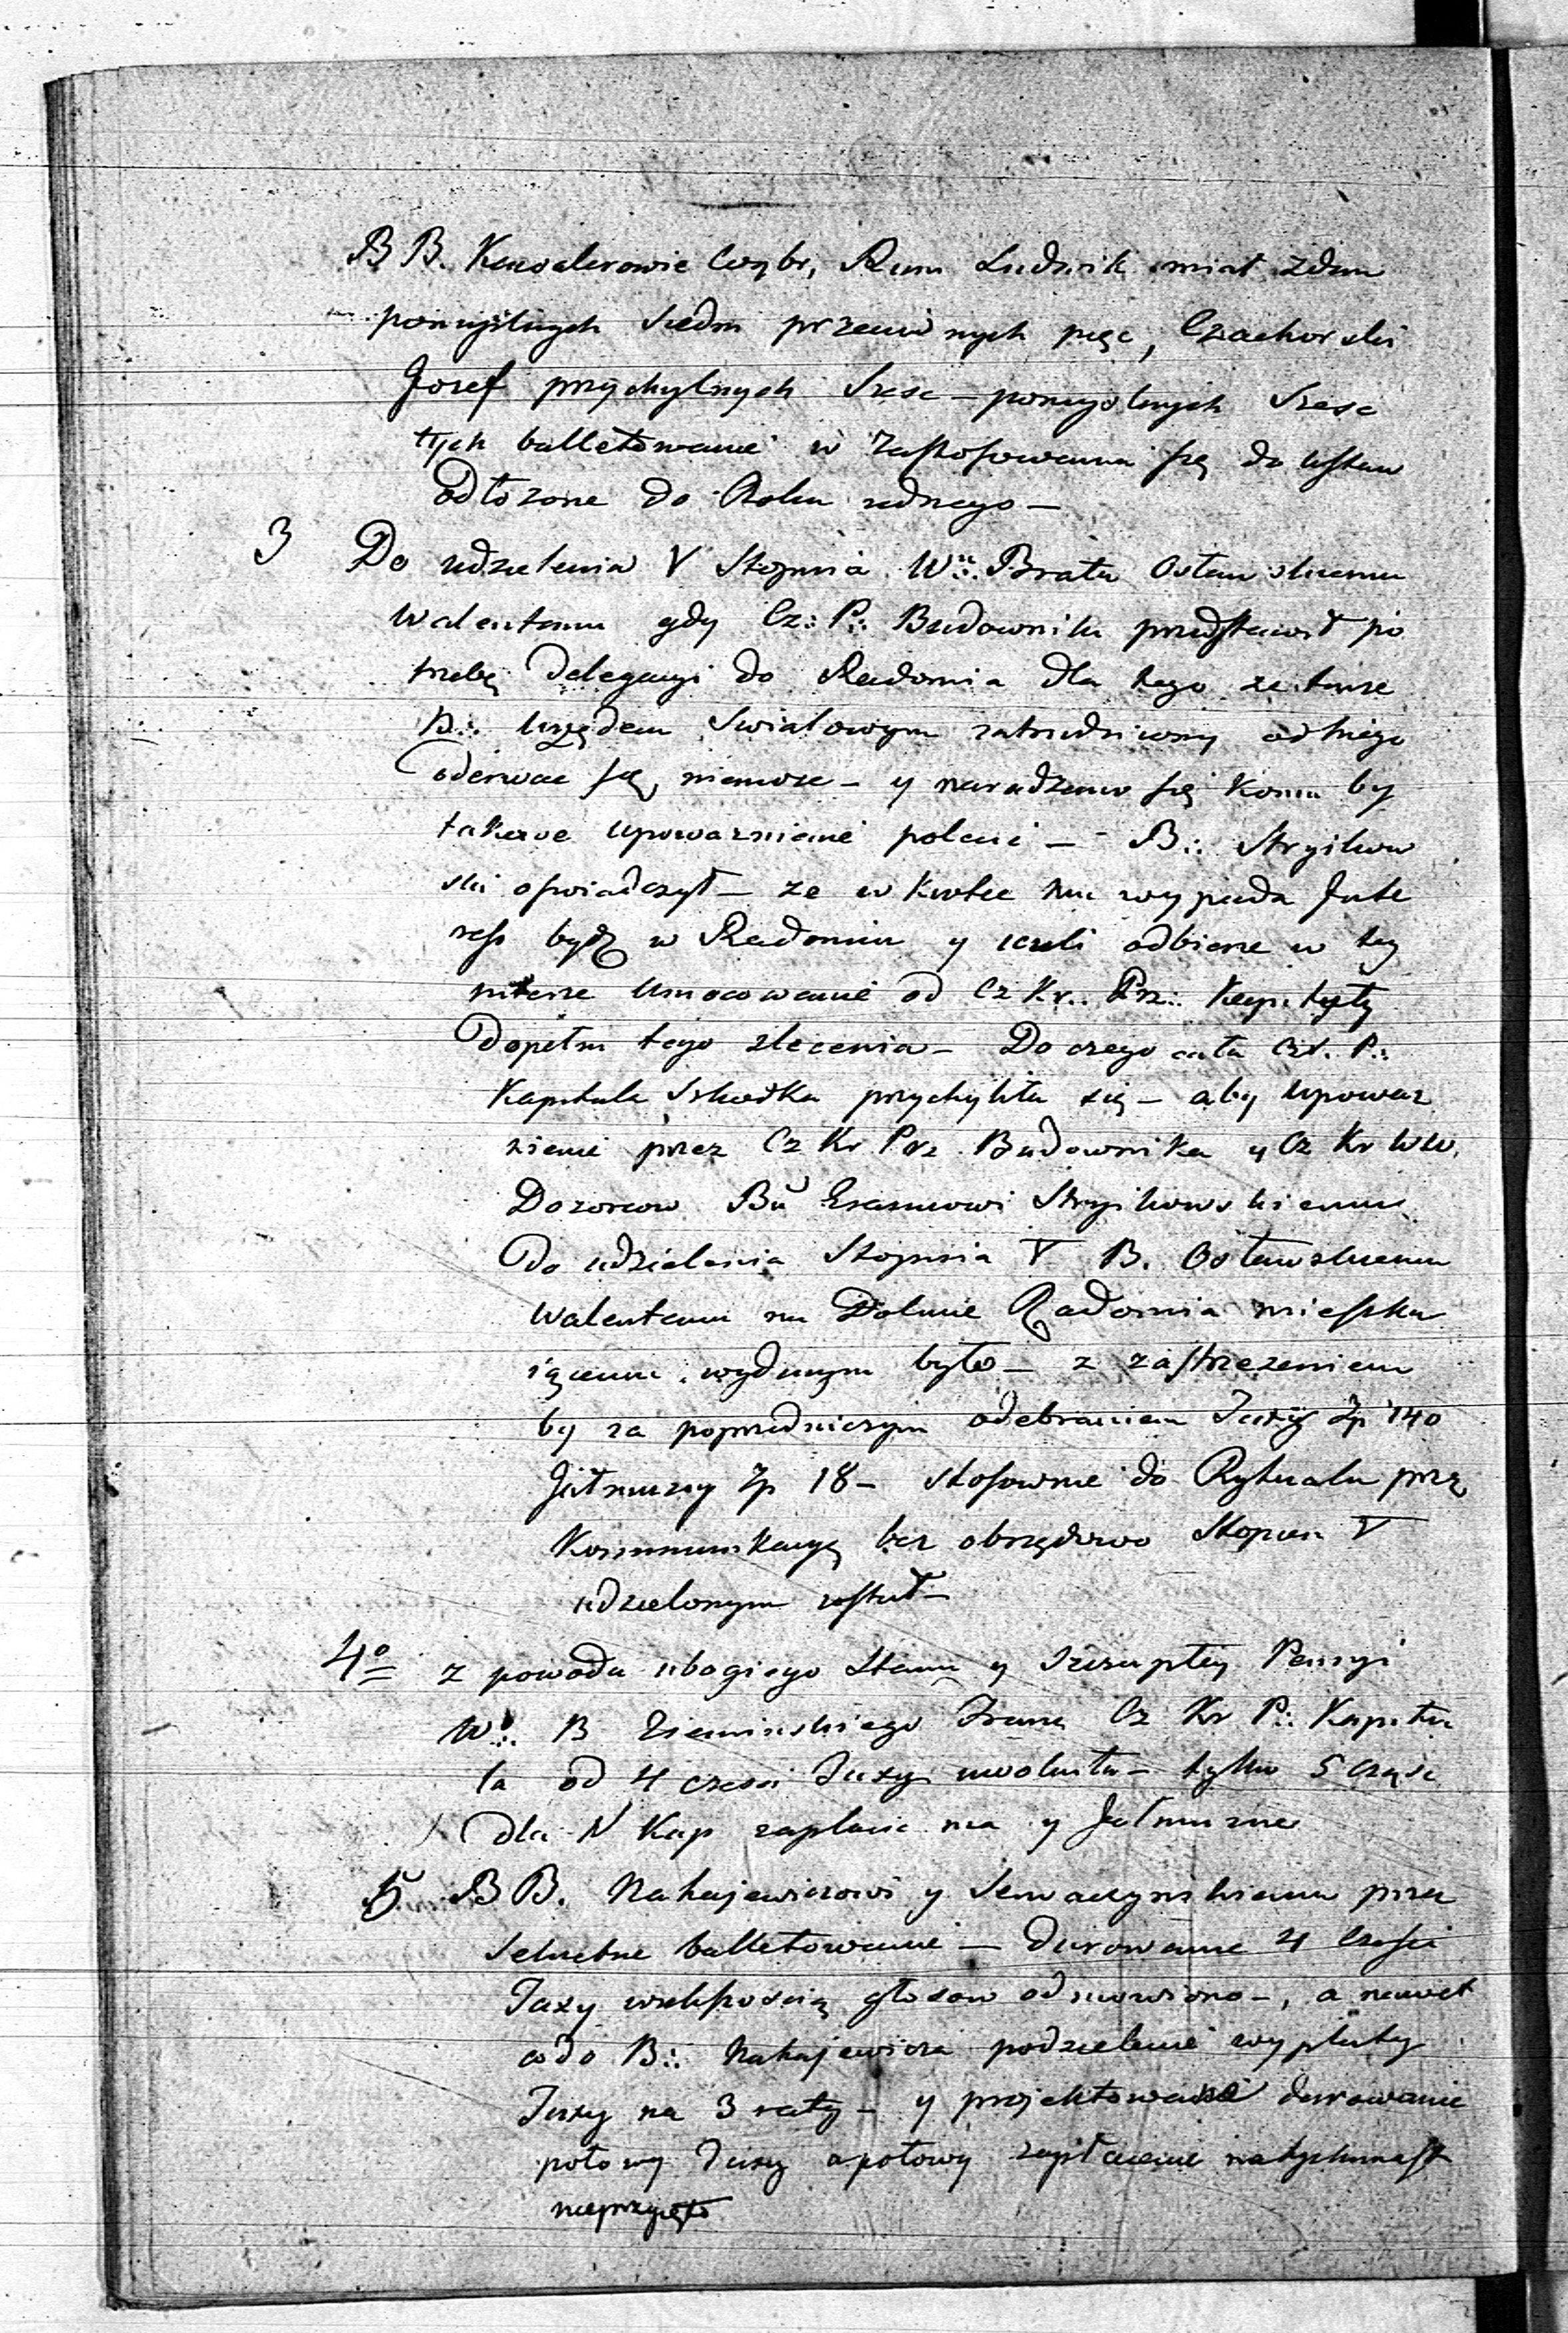 BB. Kawalerowie Wybr, Rum Ludwik miał zdan
pomyślnych siedm przeciwnych pięc, Czachorski
Jozef przychylnych szesc – pomyslnych szesc
tych balletowanie w zastosowaniu się do ustaw
odłozone do Roku
3 Do udzielenia V Stopnia W∴ Bratu Ostawskiemu
Walentemu gdy Cz: P∴ Budownik przedstawił po
trzebę Delegacyi do Radomia dla tego ze tenze
B∴ Urzędem Swiatowym zatrudniony od niego
oderwac się niemoze – y naradzano się komu by
takowe upowaznienie polecic – B∴ Strzykow
ski oswiadczył – ze w krotce mu wypada Inte
ress bydz w Radomiu y iezeli odbierze w tey
mierze Umocowanie od Cz Kr. Prz: Kapituły
dopełni tego zlecenia – Do czego cała Cz. P∴
Kapituła Szkodzka przychyliła się – aby upowaz
nienie przez Cz Kr Prz Budownika y Cz Kr WW.
Dozorcow Bu Erazmowi Strzykowskiemu
Do udzielenia Stopnia V B. Ostawskiemu
Walentemu na Dolinie Radomia mieszka
iącemu wydanym było – z zastrzezeniem
by za poprzedniczym odebraniem Taxy Zp 140
Jałmuzny Zp 18 – stosownie do Rytuału prze
Kommunikacyą bez obrzędowo Stopien V
udzielonym został –
4º z powodu ubogiego Stanu y szczupłey Pensyi
W∴ B Ziemińskiego Cz Kr P∴ Kapitu
ła od 4 częsci Taxy uwolniła – tylko 5 częsc
dla N Kap zapłacic ma y Jałmuzne
5 BB. Nakajewiczowi y przez
Sekretne balletowanie – darowanie 4 częsci
Taxy większoscią głosow odmowiono –, a nawet
codo B∴ Nakajewicza podzielenie wypłaty
Taxy na 3 raty – y projektowane darowanie
połowy Taxy apołowy zapłacenie natychmiast
nieprzyięto